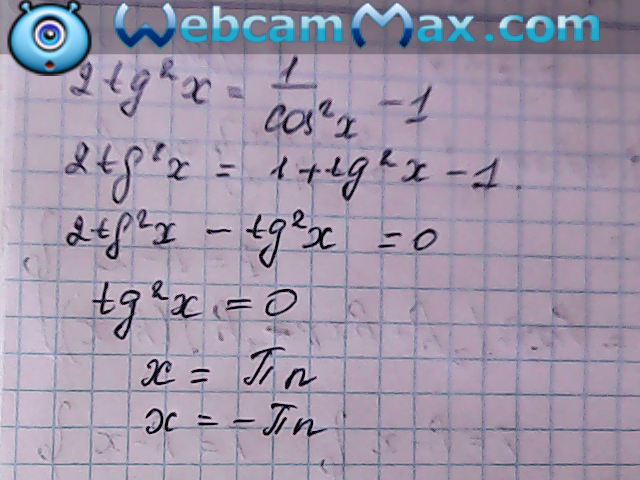 WebcamMax.com
2tg²x = 1/cos²x - 1
2tg²x = 1 + tg²x - 1
2tg²x - tg²x = 0
tg²x = 0
x = πn
x = -πn